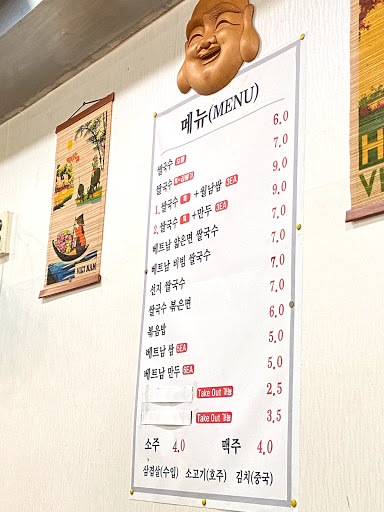 메뉴(MENU)
쌀국수 6.0
쌀국수 7.0
1. 쌀국수 + 월남쌈 3EA 9.0
2. 쌀국수 + 만두 3EA 9.0
베트남 얇은면 쌀국수 7.0
베트남 비빔 쌀국수 7.0
선지 쌀국수 7.0
쌀국수 볶은면 7.0
볶음밥 6.0
베트남 쌈 6EA 5.0
베트남 만두 6EA 5.0
Take Out 가능 2.5
Take Out 가능 3.5
소주 4.0 맥주 4.0
삼겹살(수입) 소고기(호주) 김치(중국)
VIET NAM
H
VI